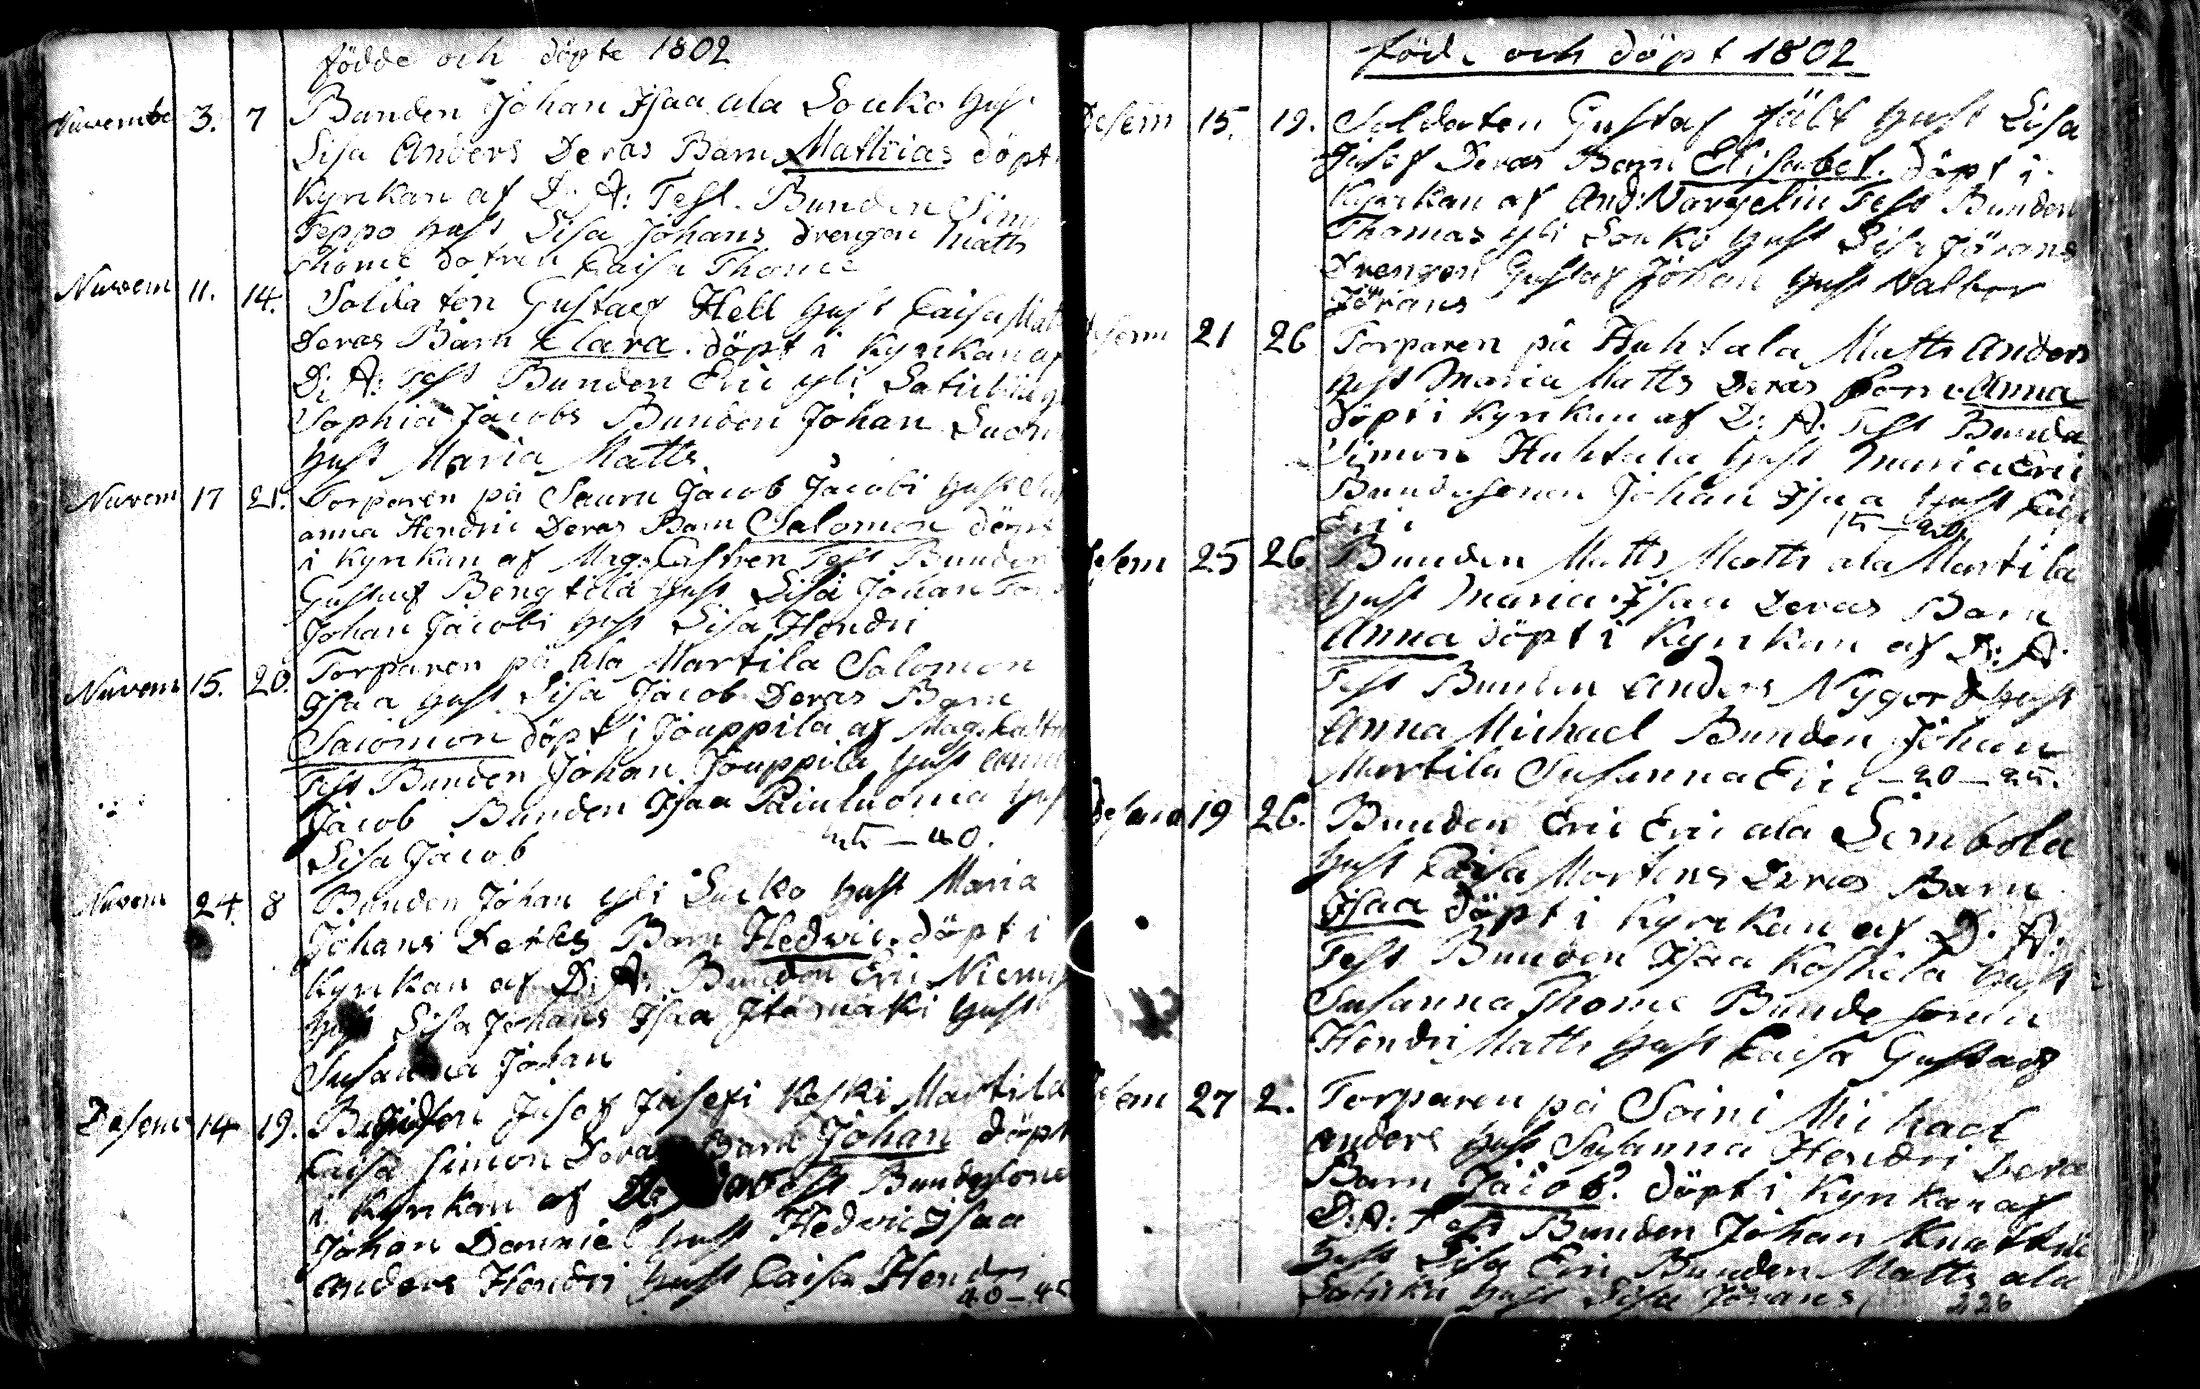 födde och döpte 1802
Nuvembe 3. 7 Bunden Johan Isaa ala Souko hust
Lisa Anders Deras Barn Mathias döpt
Kyrkan af D: A: Test. Bunden Sim
Teppo hust Lisa Johans drengen Matts
Thome dotren Caisa Thome
Nuvem 11. 14. Soldaten Gustaf Hell hust Caisa Mat
Deras Barn Clara. döpt i Kyrkan af
D: A: Test Bunden Eric yli
Sophia Jacobs Bunden Johan
hust Maria Matts
Nuvem 17 21. Torparen på Sauru Jacob Jacobi hust
anna Hendric Deras Barn Salomon döpt
i Kyrkan af Mag: Castren Test Bunden
Gustaf Bengtila hust Lisa Johan Tor
Johan Jacobi hust Lisa Hendri
Nuvem 15. 20. Torparen på ala Martila Salomon
Isaa hust Lisa Jacob Deras Barn
Salomon döpt i Jouppila af Mag. Castr
Test Bunden Johan Jouppila hust anna
Jacob Bunden Isaa Painluoma hust
Lisa Jacob 40.
Nuvem 24. 8 Bunden Johan yli Luko hust Maria
Johans Deras Barn Hedvic. döpt i
Kyrkan af D: A: Bunden Eric Niemis
hust Lisa Johans Isaa Itämäki hust
Susanna Johan
Desem 14 19. Josef Josefi Keski Martila
Caisa Simon Deras Barn Johan döpt
i Kyrkan af Test Bundesone
Johan Danniel hust Hedvic Isaa
anders Hendri hust Caisa Hendri
40-45
föd. och döpt 1802
Desem 15. 19. Soldaten Gustaf fält hust Lisa
Josef Deras Barn Elisabet. döpt i
Kyrkan af And: Norgelin Test Bunden
Thomas yli Souko hust Lisa Jörans
Drengen Gustaf Johan hust Valbor
Jörans
Desem 21 26 Torparen på Huhtala Matts Anders
hust Maria Matts Deras barn Anna
döpt i Kyrkan af D: A. Test Bunde
Simon Huhtala hust Maria Eric
Bundesonen Johan Isaa hust
Eric
Desem 25 26 Bunden Matts Matts ala Martila
hust Maria Isaa Deras Barn
Anna döpt i Kyrkan af D: A.
Test Bunden Anders Nygord hust
Anna Michael Bunden Johan
Martila Susanna Eric 20-25.
Desem 19 26. Bunden Eric Eric ala Simbola
hust Caisa Mortens Deras Barn
Isaa döpt i Kyrkan af D: A:
Test Bunden Isaa Koskela hust
Susanna Thome Bundesonen
Hendri Matts hust Caisa Gustaf
Desem 27 2. Torparen på Soini Michael
anders hust Susanna Hendri Dera
Barn Jacob. döpt i Kyrkan af
D: A: Test Bunden Johan Knuttila
hust Lisa Eric Bunden Matts ala
hust Lisa Jörans,
226